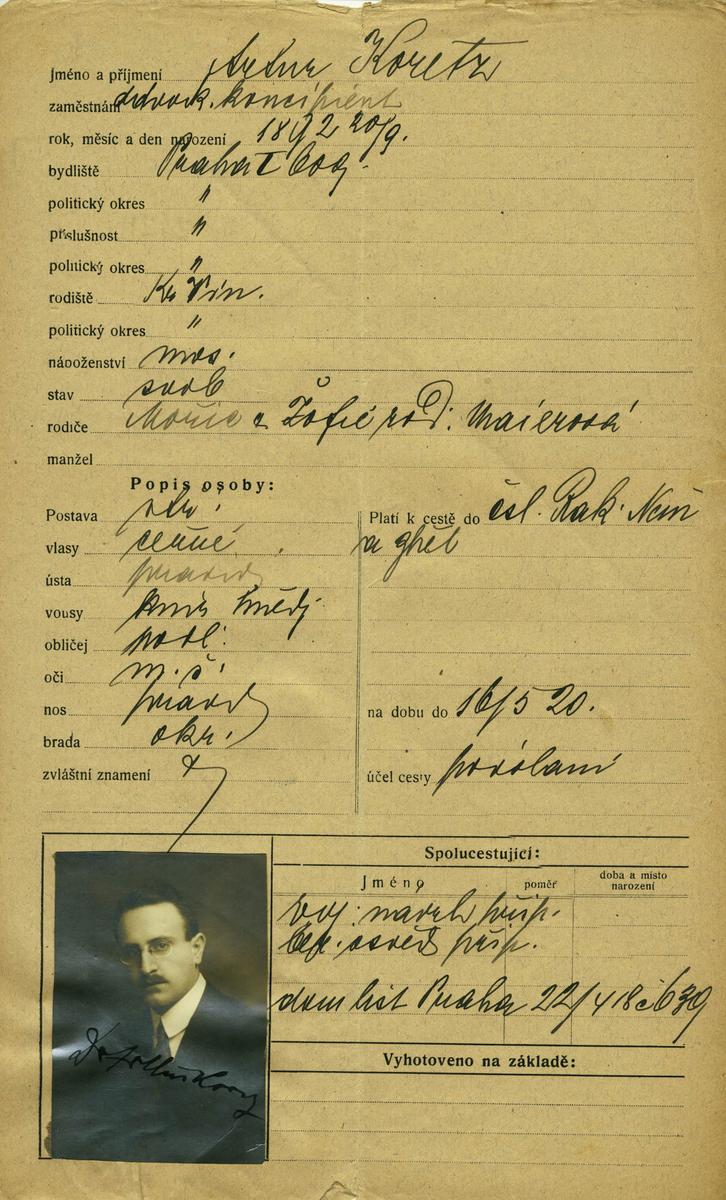 Jméno a příjmení Artur Koretz
zaměstnání advok. koncipient
rok, měsíc a den narození 1892 20/9.
bydliště Praha I 609.
politický okres "
příslušnost "
politický okres "
rodiště Kr Vin.
politický okres "
náboženství mos.
stav svob
rodiče Mořic a Žofie rod. Maierová
manžel
Popis osoby:
Postava stř.
vlasy černé
ústa pravid
vousy knír hnědý
obličej podl.
oči m. š.
nos pravid
brada okr.
zvláštní znamení
Platí k cestě do čsl. Rak. Něm
a zpět
na dobu do 16/5 20.
účel cesty povolání
Spolucestující:
Jméno poměr doba a místo narození
přip.
přip.
dom list Praha 22/4 18 č 639
Vyhotoveno na základě:
Dr Artur Koretz